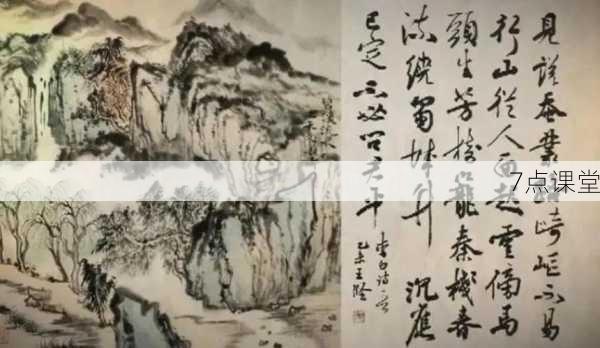 見說蚕叢路崎嶇不易
行山從人面起雲傍馬
頭生芳樹籠秦棧春
流繞蜀城升沉應
已定不必问君平
李白詩一首
乙未王
7点课堂